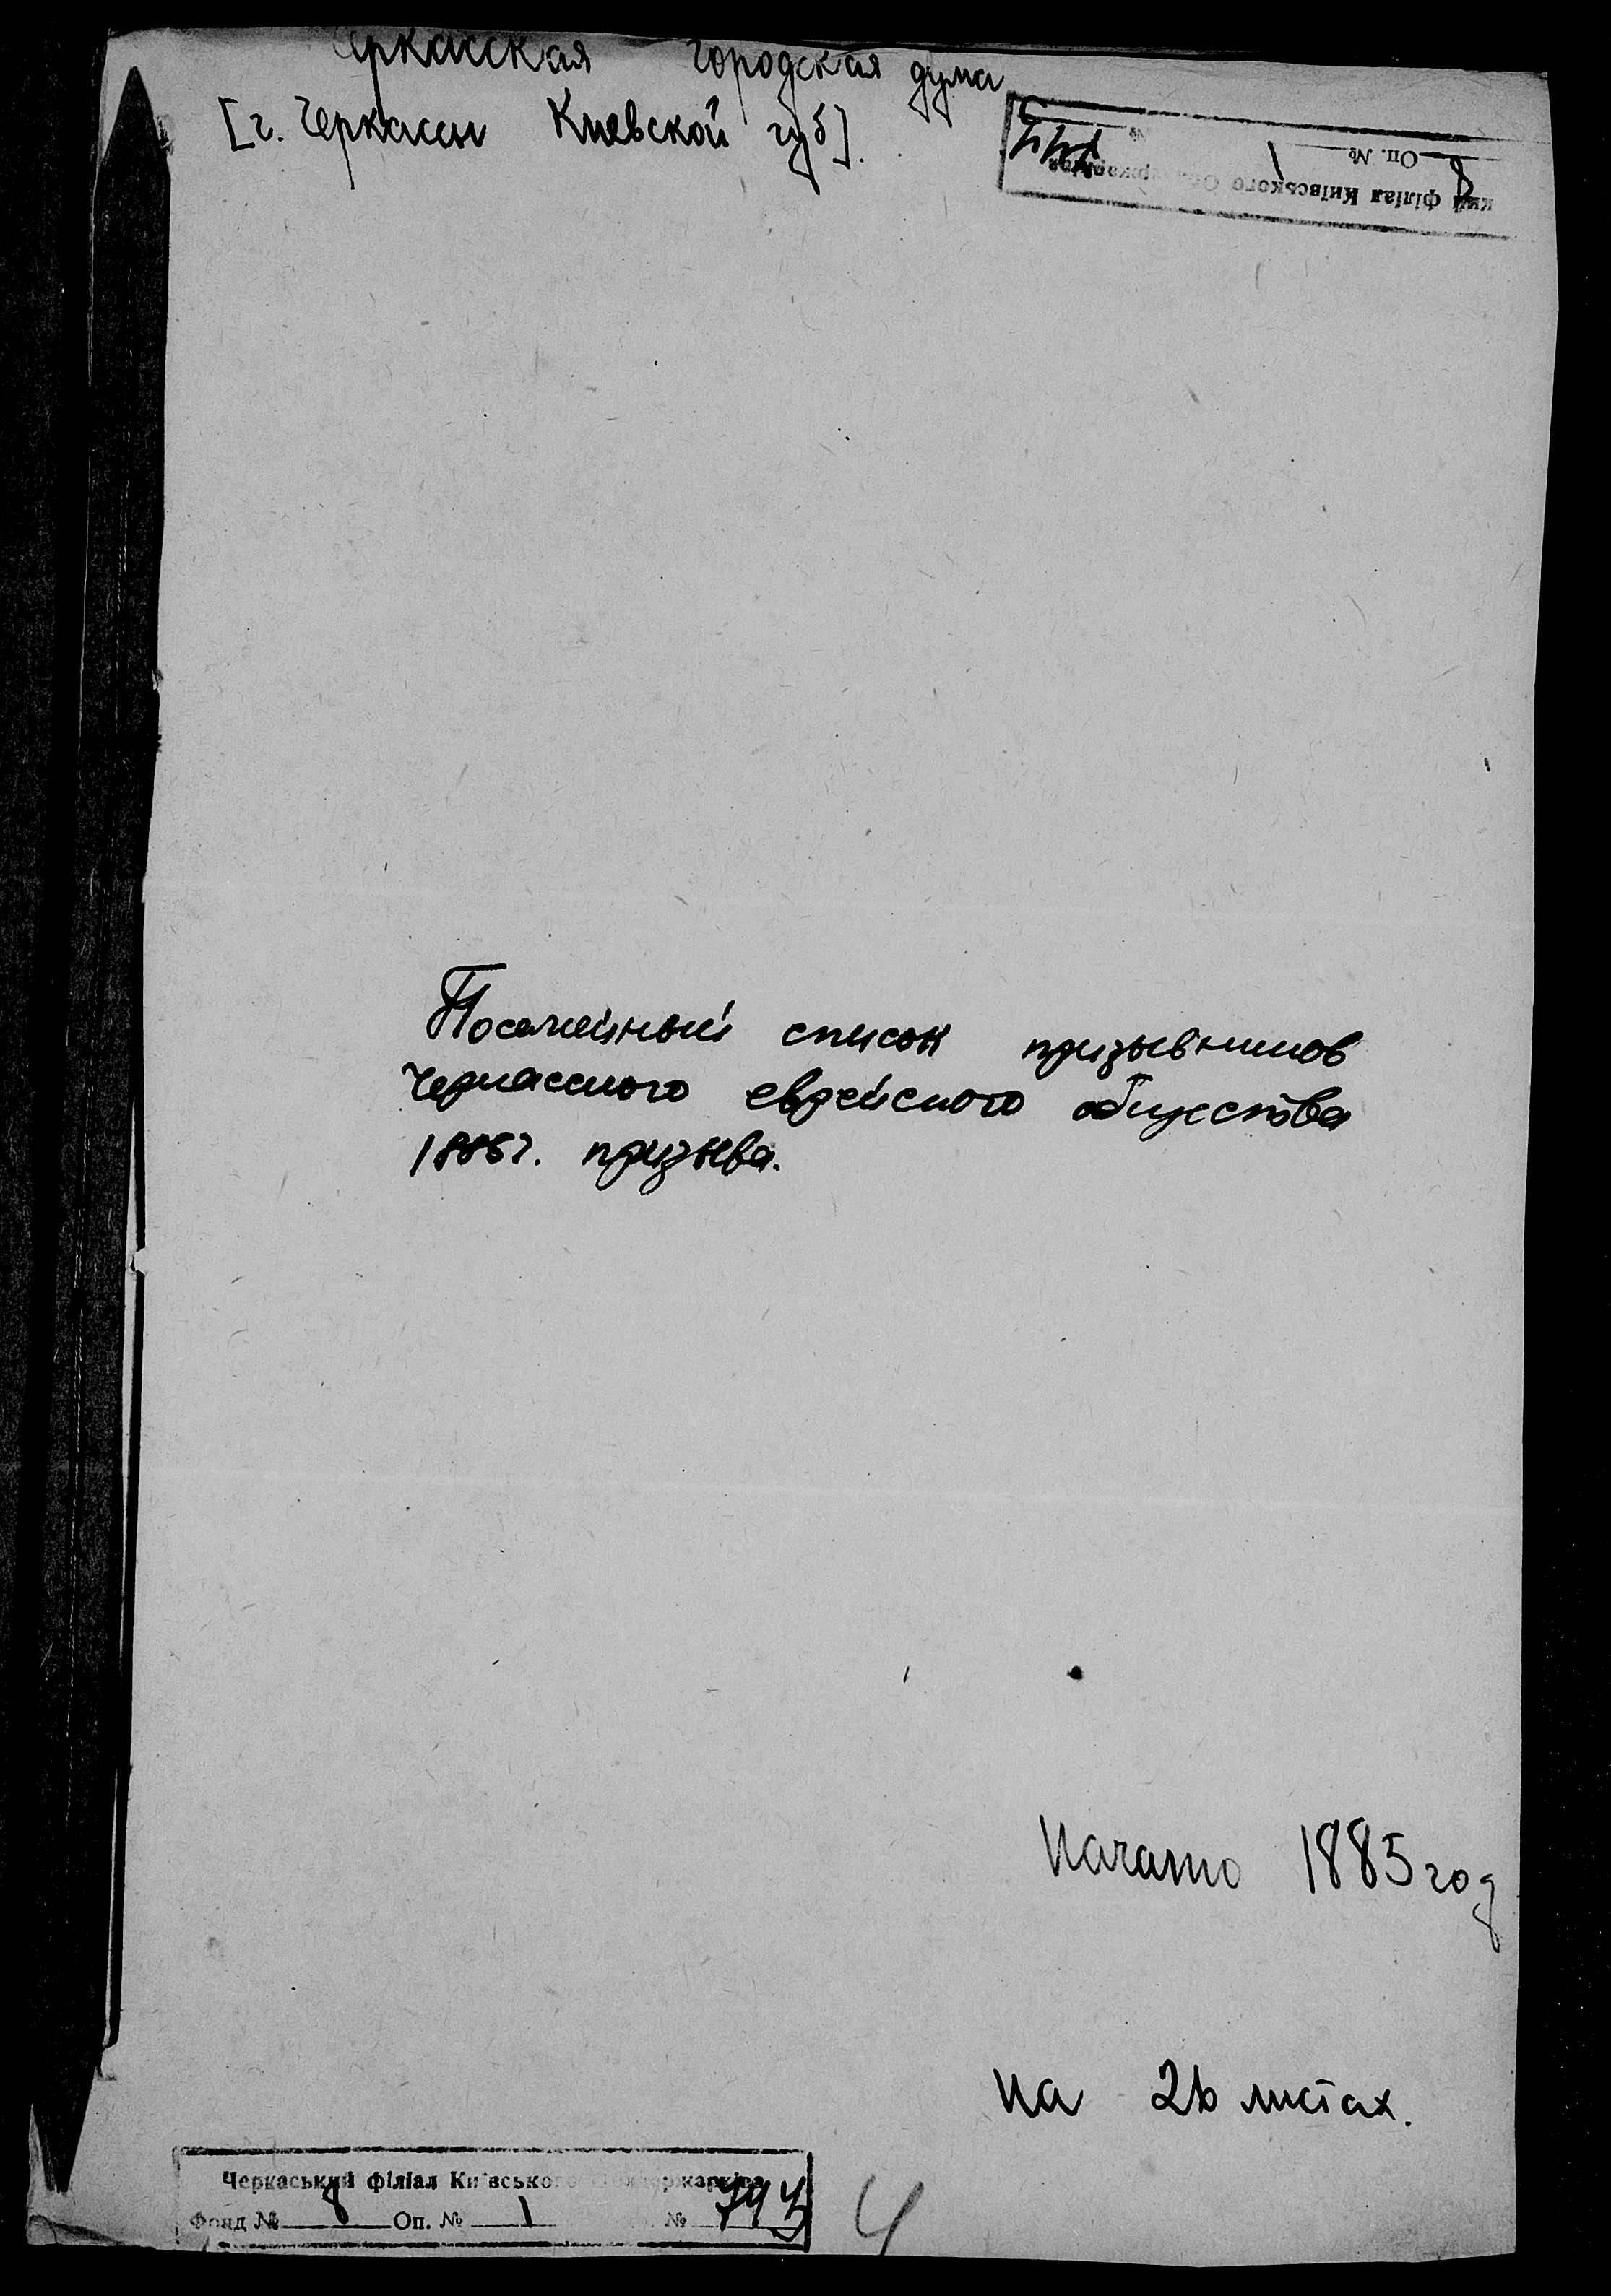 Черкасская городская дума
[г. Черкассы Киевской губ].
Оп. № 1
Посемейный список призывников
Черкасского еврейского общества
1886г. призыва.
Начато 1885 год
на 26 листах.
Черкаський філіал Київського
Фонд № 8 Оп. № 1 №
4